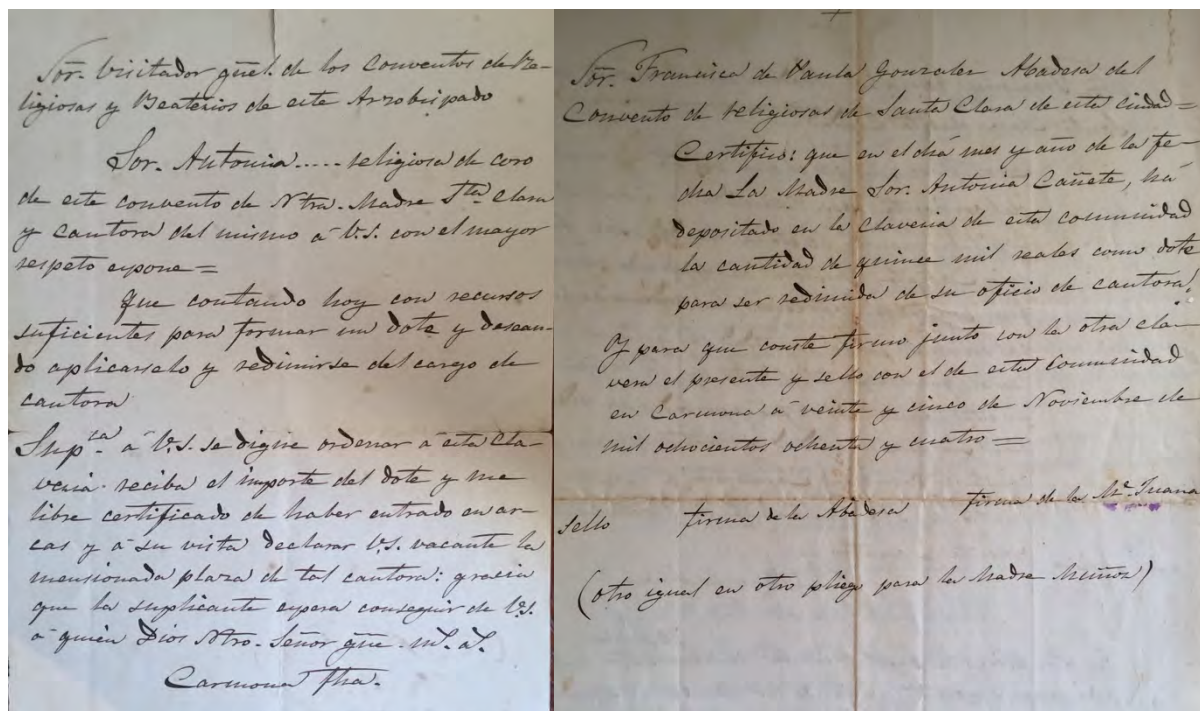 Sor. Visitador gñel. de los Conventos de Re-
ligiosas y Beaterios de este Arzobispado
Sor. Antonia..... religiosa de coro
de este convento de Ntra. Madre Sta. Clara
y cantora del mismo á V.S. con el mayor
respeto expone=
Que contando hoy con recursos
suficientes para formar un dote y desean-
do aplicarselo y redimirse del cargo de
cantora
Supca. á V.S. se digne ordenar á esta cla-
veria reciba el importe del dote y me
libre certificado de haber entrado en ar-
cas y á su vista declarar V.S. vacante la
mensionada plaza de tal cantora: gracia
que la suplicante espera conseguir de V.S.
á quien Dios Ntro. Señor gñe. m.s a.s
Carmona fha.
Sor. Francisca de Paula Gonzalez Abadesa del
Convento de religiosas de Santa Clara de esta ciudad=
Certifico: que en el dia mes y año de la fe-
cha La Madre Sor. Antonia Cañete, ha
depositado en la Claveria de esta comunidad
la cantidad de quince mil reales como dote
para ser redimida de su oficio de cantora,
Y para que conste firmo junto con la otra cla-
vera el presente y sello con el de esta Comunidad
en Carmona á veinte y cinco de Noviembre de
mil ochocientos ochenta y cuatro=
Sello firma de la Abadesa firma de la Me. Juana
(otro igual en otro pliego para la Madre Muñoz)